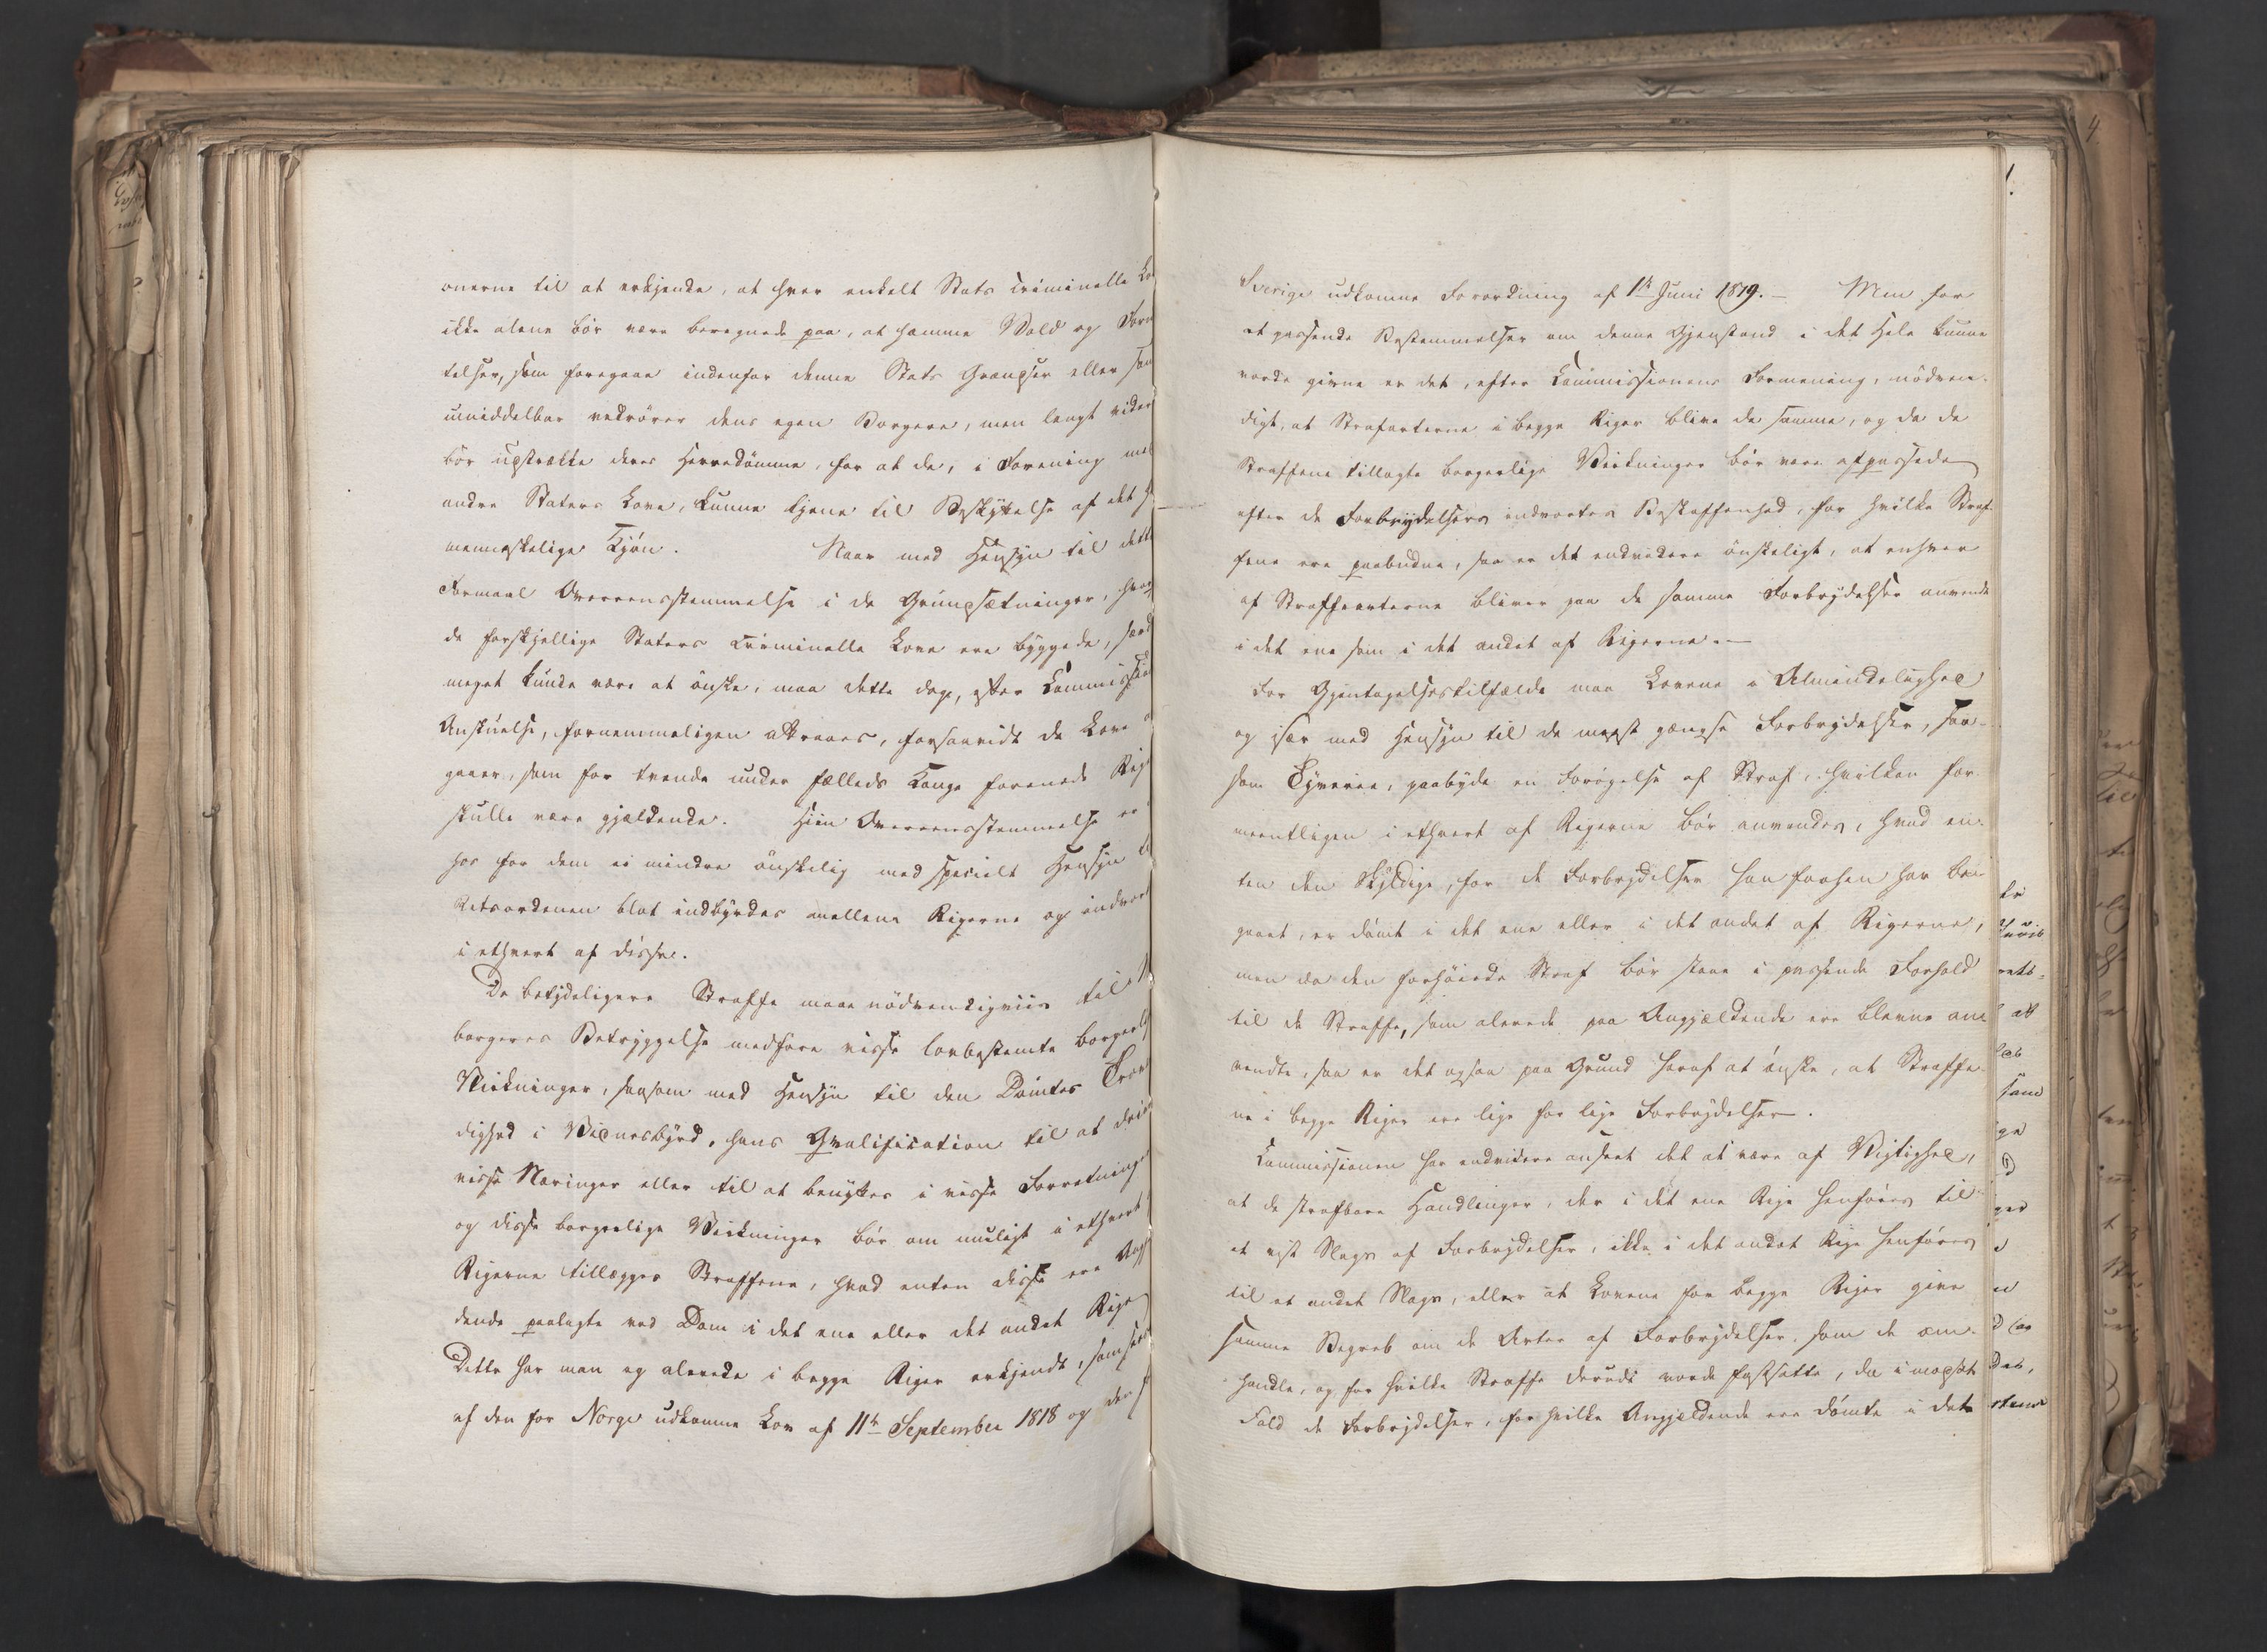 onerne til at erkjende, at hver enkelt Stats criminelle Lo
ikke alene bør være beregnede paa, at hæmme Vold og Foru
telser, som foregaae indenfor denne Stats Grændser eller som
umiddelbar vedrører dens egen Borgere, men langt videre
bør udstrække deres Herredømme, for at de, i Forening med
andre Staters Love, kunne tjene til Beskyttelse af det h
menneskelige Kjøn. Naar med Hensyn til dette
Formaal Overeensstemmelse i de Grundsætninger, hvor
de forskjellige Staters criminelle Love ere byggede, saare
meget kunde være at ønske, maa dette dog, efter Commission
Anskuelse, fornemmeligen attraaes, forsaavidt de Love
gaaer, som for tvende under fælleds Konge forenede Rig
skulle være gjældende. Hiin Overeensstemmelse er
hos for dem ei mindre ønskelig med specielt Hensyn til
Retsordenen blot indbyrdes mellem Rigerne og indvor
i ethvert af disse.
De betydeligere Straffe maae nødvendigviis til
borgeres Betryggelse medføre visse lovbestemte borgerlig
Virkninger, saasom med Hensyn til den Dømtes Trov
dighed i Vidnesbyrd, hans Qvalification til at drive
visse Næringer eller til at benyttes i visse Forretninger
og disse borgerlige Virkninger bør om muligt i ethvert
Rigerne tillægges Straffene, hvad enten disse ere Ang
dende paalagte ved Dom i det ene eller det andet Rige
Dette har man og allerede i begge Riger erkjendt, som
af den for Norge udkomne Lov af 11te September 1818 og den f
Sverige udkomne Forordning af 1ste Juni 1819. – Men for
at passende Bestemmelser om denne Gjenstand i det Hele kunne
vorde givne er det, efter Commissionens Formening, nødven-
digt, at Strafarterne i begge Riger blive de samme, og da de
Straffene tillagte borgerlige Virkninger bør være afpassede
efter de Forbrydelsers indvortes Beskaffenhed, for hvilke Straf-
fene ere paabudne, saa er det endvidere ønskeligt, at enhver
af Straffearterne bliver paa de samme Forbrydelser anvendt
i det ene som i det andet af Rigerne. —
For Gjentagelsestilfælde maa Lovene i Almindelighed
og især med Hensyn til de meest gængse Forbrydelser, saa-
som Tyverie, paabyde en Forøgelse af Straf, hvilken for-
meentligen i ethvert af Rigerne bør anvendes, hvad en-
ten den Skyldige, for de Forbrydelser han forhen har be-
gaaet, er dømt i det ene eller i det andet af Rigerne,
men da den forhøiede Straf bør staae i passende Forhold
til de Straffe, som allerede paa Angjældende ere blevne an-
vendte, saa er det ogsaa paa Grund heraf at ønske, at Straffe-
ne i begge Riger ere lige for lige Forbrydelser.
Commissionen har endvidere anseet det at være af Vigtighed,
at de strafbare Handlinger, der i det ene Rige henføres til
et vist Slags af Forbrydelser, ikke i det andet Rige henføres
til et andet Slags, eller at Lovene for begge Riger give
samme Begreb om de Arter af Forbrydelser, som de om-
handle, og for hvilke Straffe derudi vorde fastsatte, da i modsat
Fald de Forbrydelser, for hvilke Angjældende ere dømte i det